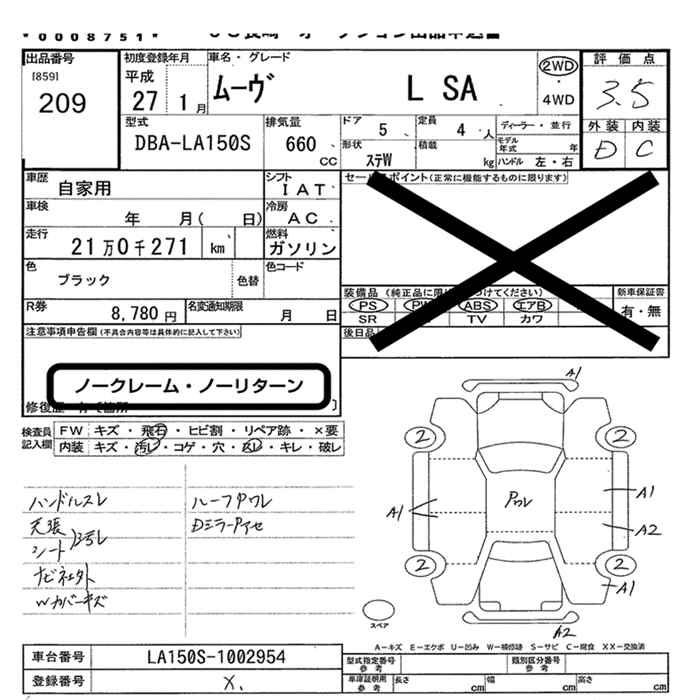 *0008751*
出品番号
[859]
209
初度登録年月
平成
27 1月
車名・グレード
ムーヴ L SA
2WD
・
4WD
評価点
3.5
外装 内装
D C
型式
DBA-LA150S
排気量
660
cc
ドア
5
定員
4 人
ディーラー・並行
形状
ステW
積載
kg
モデル年式 年
ハンドル 左・右
車歴
自家用
シフト
IAT
車検
年 月( 日)
冷房
AC
走行
21万0千271 km
燃料
ガソリン
色
ブラック
色替
色コード
R券
8,780円
名変通知期限
月 日
セールスポイント(正常に機能するものに限ります)
装備品
PS ABS エアB
SR TV カワ
新車保証書
有・無
後日品
注意事項申告欄(不具合内容等は具体的に記入して下さい)
ノークレーム・ノーリターン
検査員記入欄
FW キズ・飛石・ヒビ割・リペア跡・×要
内装 キズ・汚レ・コゲ・穴・スレ・キレ・破レ
ハンドルスレ
天張
シート 汚レ
W.カバーキズ
ルーフアワレ
A1
2 2
A1
アワレ
A1
A2
2 2
A1
A2
スペア
A-キズ E-エクボ U-凹み W-補修跡 S-サビ C-腐食 XX-交換済
車台番号
LA150S-1002954
登録番号
X.
型式指定番号
参考
類別区分番号
参考
車庫証明用
参考
長さ cm
幅 cm
高さ cm